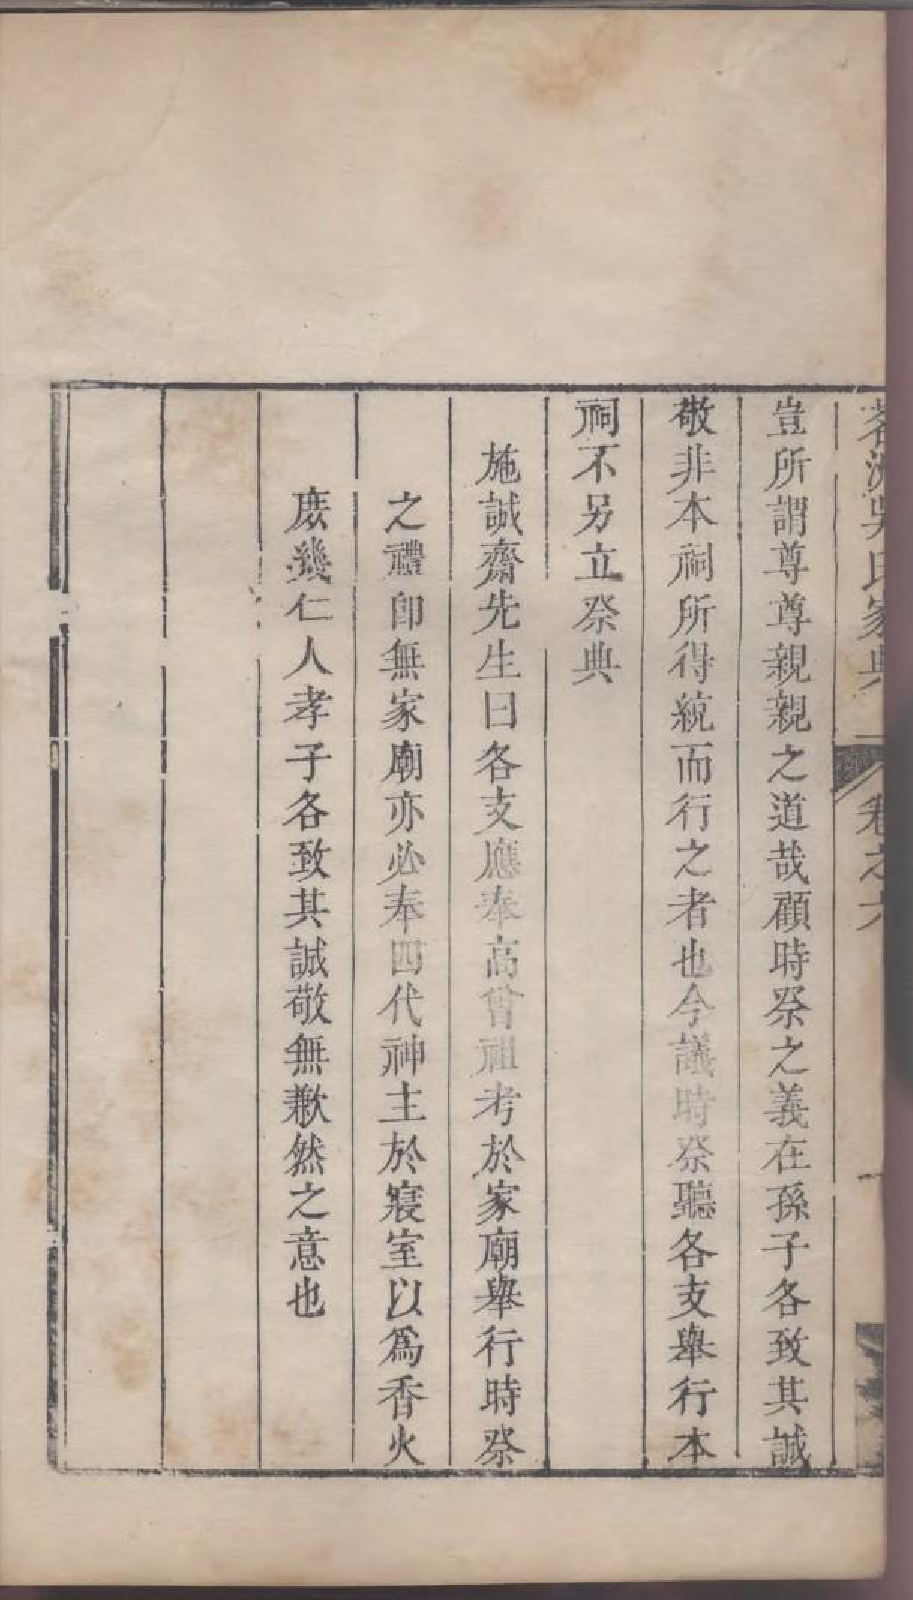 茗洲吳氏家典
卷之六
豈所謂尊尊親親之道哉顧時祭之義在孫子各致其誠
敬非本祠所得統而行之者也今議時祭聽各支舉行本
祠不另立祭典
施誠齋先生曰各支應奉高曾祖考於家廟舉行時祭
之禮卽無家廟亦必奉四代神主於寢室以爲香火
庻幾仁人孝子各致其誠敬無歉然之意也